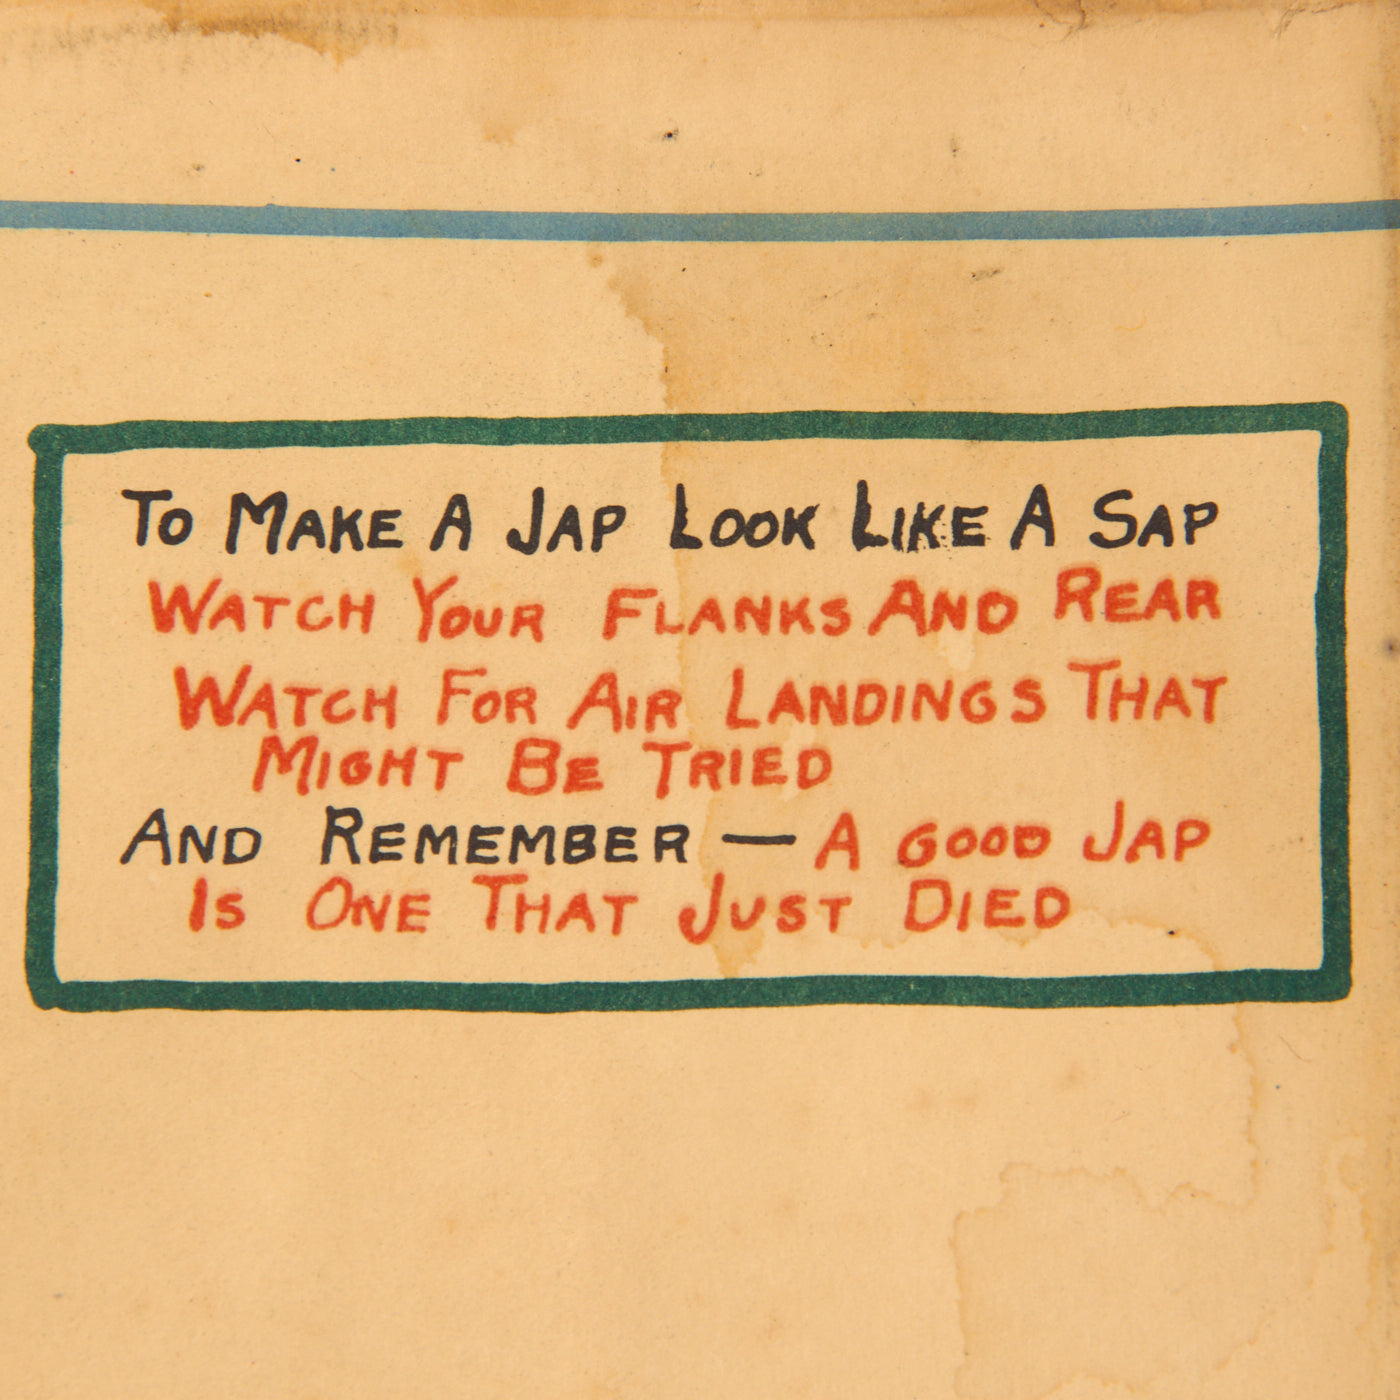 To Make A Jap Look Like A Sap
Watch Your Flanks And Rear
Watch For Air Landings That
Might Be Tried
And Remember — A Good Jap
Is One That Just Died